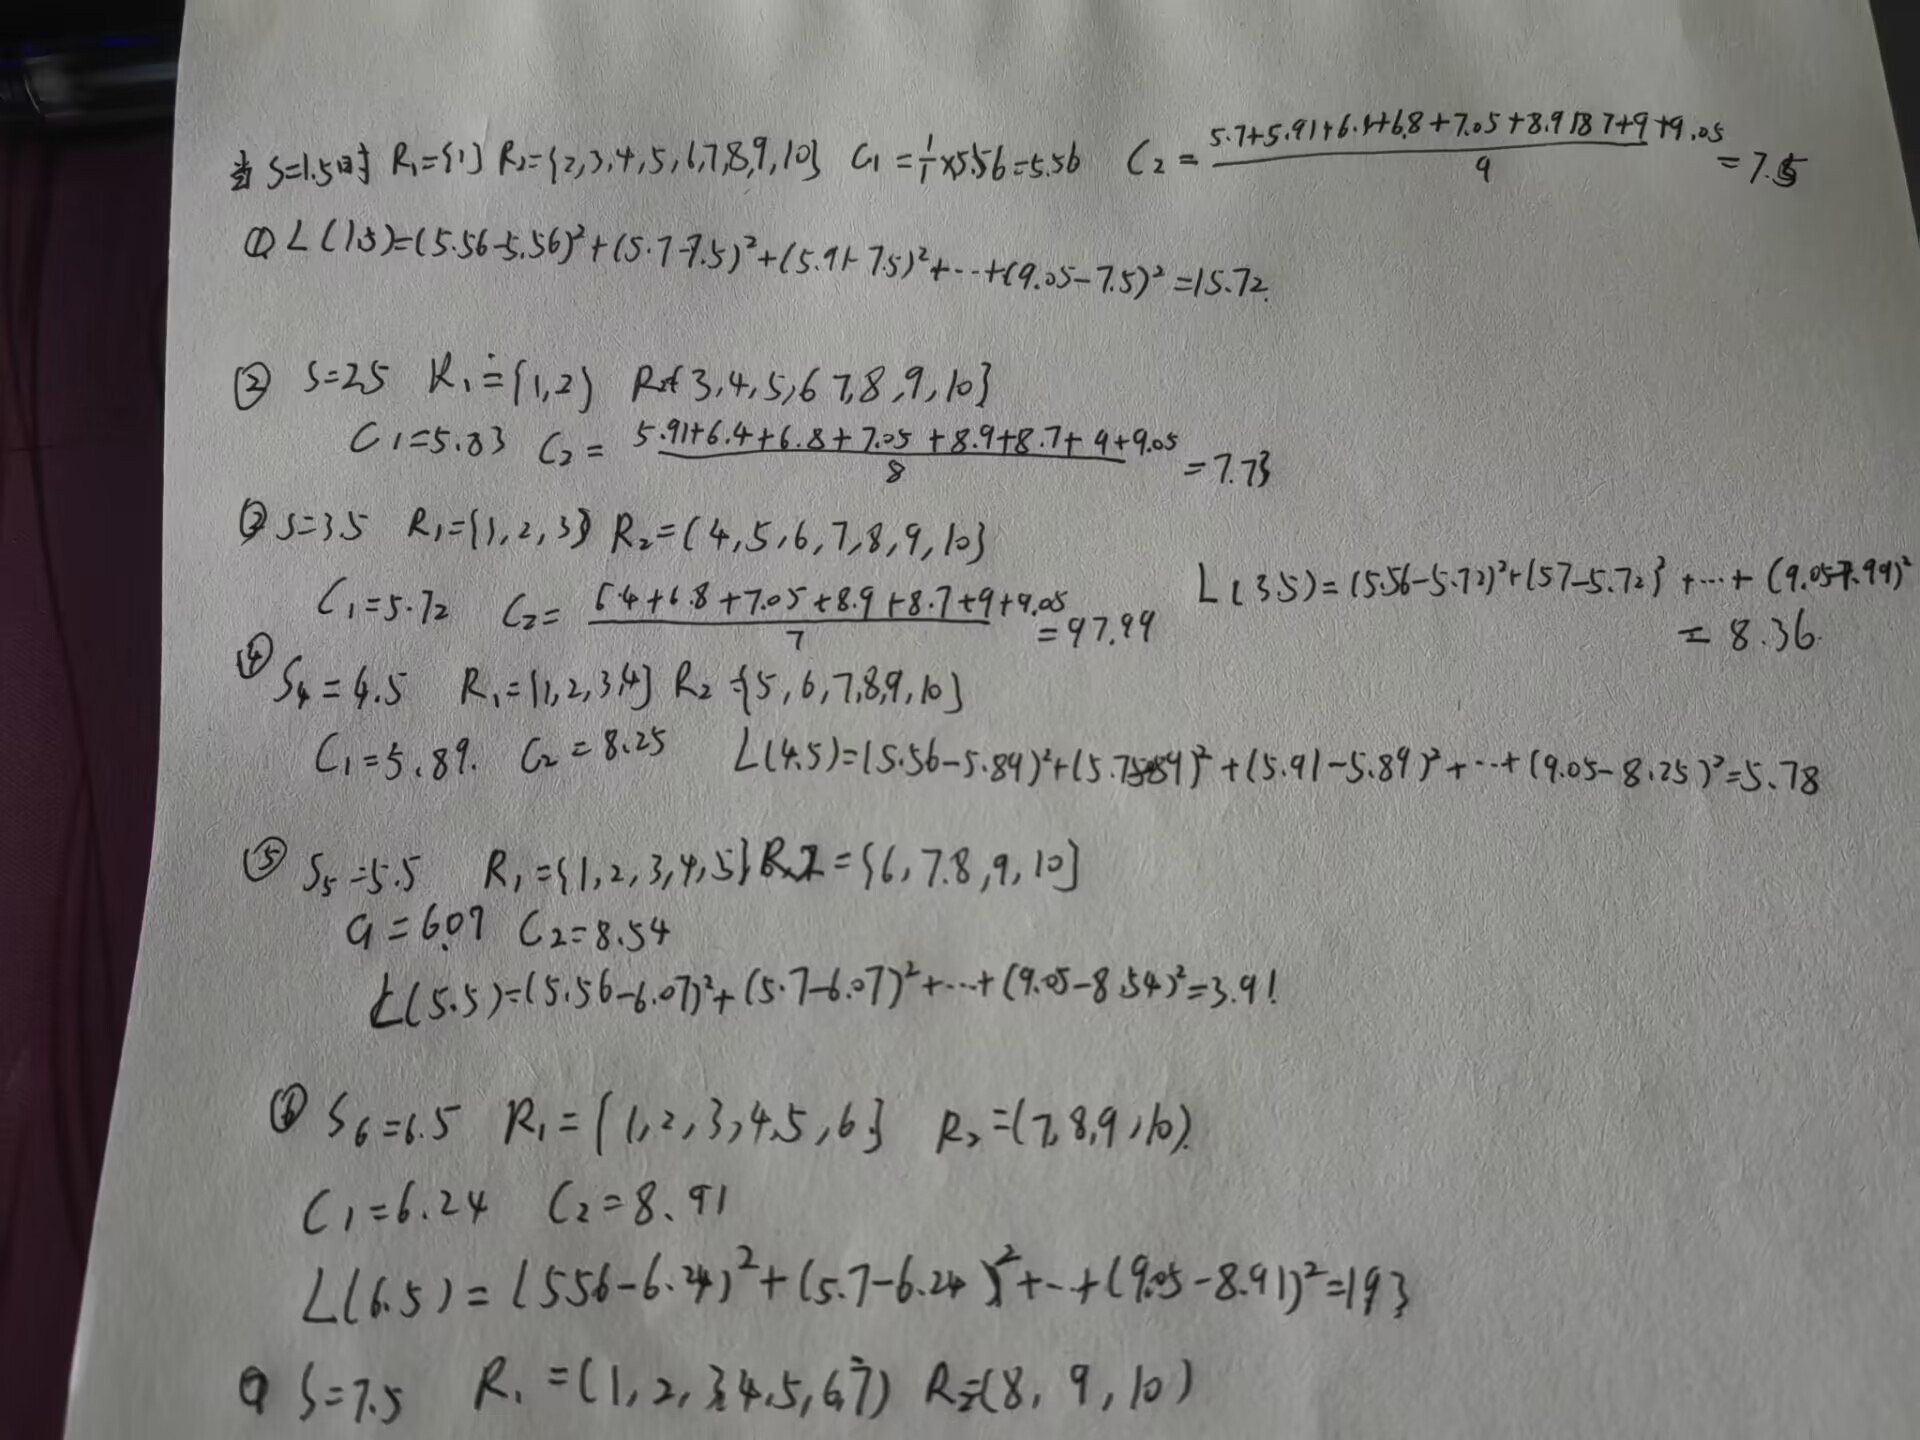 当 S=1.5时 R₁={1} R₂={2,3,4,5,6,7,8,9,10} C₁=1/1×5.56=5.56 C₂= (5.7+5.91+6.4+6.8+7.05+8.9+8.7+9+9.05)/9 =7.5
① L(1.5)=(5.56-5.56)²+(5.7-7.5)²+(5.91-7.5)²+…+(9.05-7.5)²=15.72.
② S=2.5 R₁={1,2} R₂={3,4,5,6 7,8,9,10}
C₁=5.83 C₂= (5.91+6.4+6.8+7.05+8.9+8.7+9+9.05)/8 =7.73
③ S=3.5 R₁={1,2,3} R₂={4,5,6,7,8,9,10}
C₁=5.72 C₂= (6.4+6.8+7.05+8.9+8.7+9+9.05)/7 =97.99 L(3.5)=(5.56-5.72)²+(5.7-5.72)²+…+(9.05-7.99)²
=8.36.
④ S₄=4.5 R₁={1,2,3,4} R₂={5,6,7,8,9,10}
C₁=5.89. C₂=8.25 L(4.5)=(5.56-5.89)²+(5.7-5.89)²+(5.91-5.89)²+…+(9.05-8.25)²=5.78
⑤ S₅=5.5 R₁={1,2,3,4,5} R₂={6,7.8,9,10}
C₁=6.07 C₂=8.54
L(5.5)=(5.56-6.07)²+(5.7-6.07)²+…+(9.05-8.54)²=3.91
⑥ S₆=6.5 R₁={1,2,3,4,5,6} R₂=(7,8,9,10).
C₁=6.24 C₂=8.91
L(6.5)=(5.56-6.24)²+(5.7-6.24)²+…+(9.05-8.91)²=193
S=7.5 R₁=(1,2,3,4,5,6,7) R₂=(8,9,10)